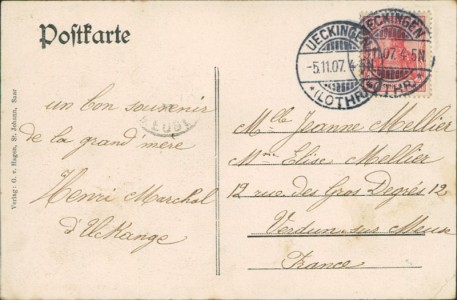 Postkarte
UECKINGEN
-5.11.07. 4-5N.
*(LOTHR.)*
UECKINGEN
11.07. 4-5N.
(LOTHR.)*
Verlag: G. v. Hagen, St. Johann, Saar
un bon souvenir
de la grand mère
Henri Marchal
d'UcKange
Mlle Jeanne Mellier
Mme Elise Mellier
12 rue des Gros Degrés 12
Verdun sur Meuse
France